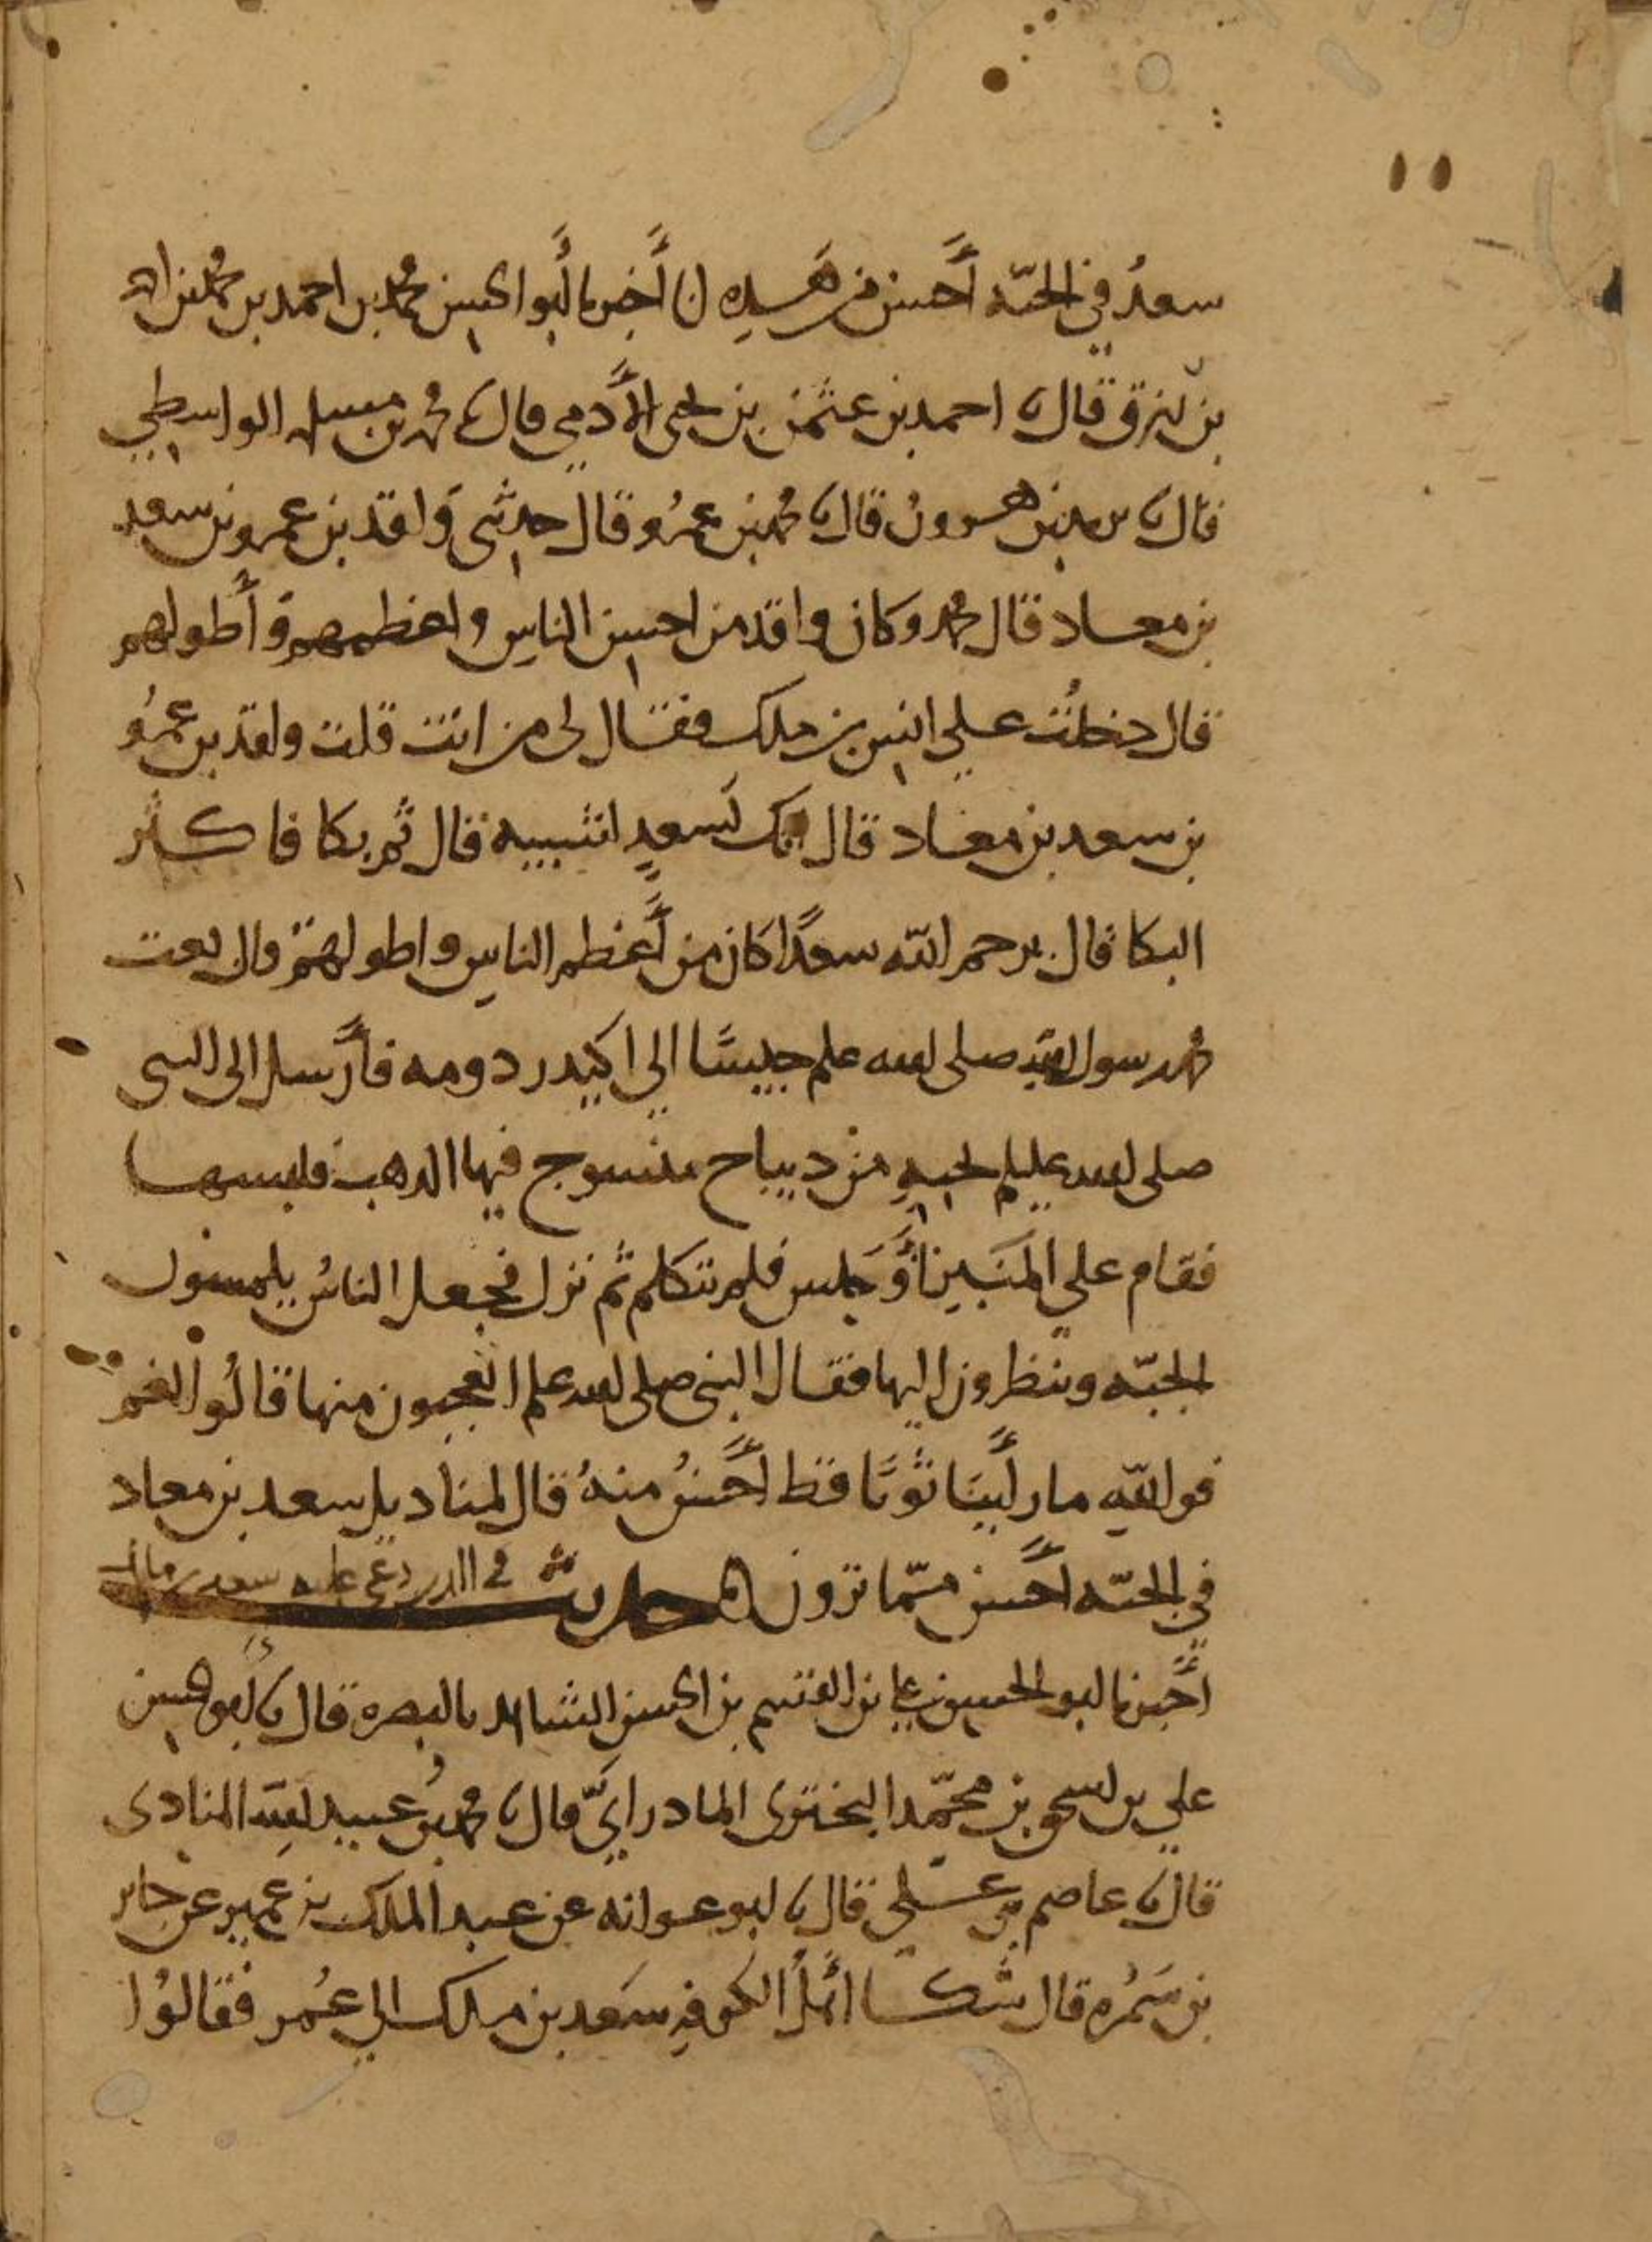 ١١
سعدٌ في الجنّه أحسن من هذه أخبرنا أبو الحسن محمد بن احمد بن محمد بن
بن رزق قال نا احمد بن عثمن بن يحيى الأدمي قال نا محمد بن مسلمه الواسطي
قال نا يزيد بن هرون قال نا محمد بن عمرو قال حدثني واقد بن عمرو بن سعد
بن معاد قال محمد وكان واقد من احسن الناس واعظمهم وأطولهم
قال دخلت علي انس بن ملك فقال لي من انت قلت واقد بن عمرو
بن سعد بن معاد قال انك بسعدٍ لشبيه قال ثم بكا فاكثر
البكا قال يرحم الله سعدًا كان من أعظم الناس واطولهم قال بعث
رسول الله صلى الله عليه جيشًا الي اكيدر دومه فأرسل الى النبي
صلى الله عليه بجبهٍ من ديباج منسوج فيها الدهب فلبسها
فقام علي المنبر أو جلس فلم يتكلم ثم نزل فجعل الناس يلمسون
الجبّه وينظرون اليها فقال النبي صلى الله عليه اتعجبون منها قالوا نعم
فوالله ما رأينا ثوبًا قط أحسن منه قال لمناديل سعد بن معاد
في الجنّه أحسن ممّا ترون حديث في الذي دعى عليه سعد بن مالك
أخبرنا ابو الحسين علي بن القسم بن الحسن الشاهد بالبصره قال نا ابو الحسن
علي بن اسحق بن محمّد البختري المادرايّ قال نا محمد بن عبيد الله المنادى
قال نا عاصم بن علي قال نا ابو عوانه عن عبد الملك بن عمير عن جابر
بن سَمُره قال شكا أهلُ الكوفهِ سَعد بن ملك الي عُمر فقالوُا